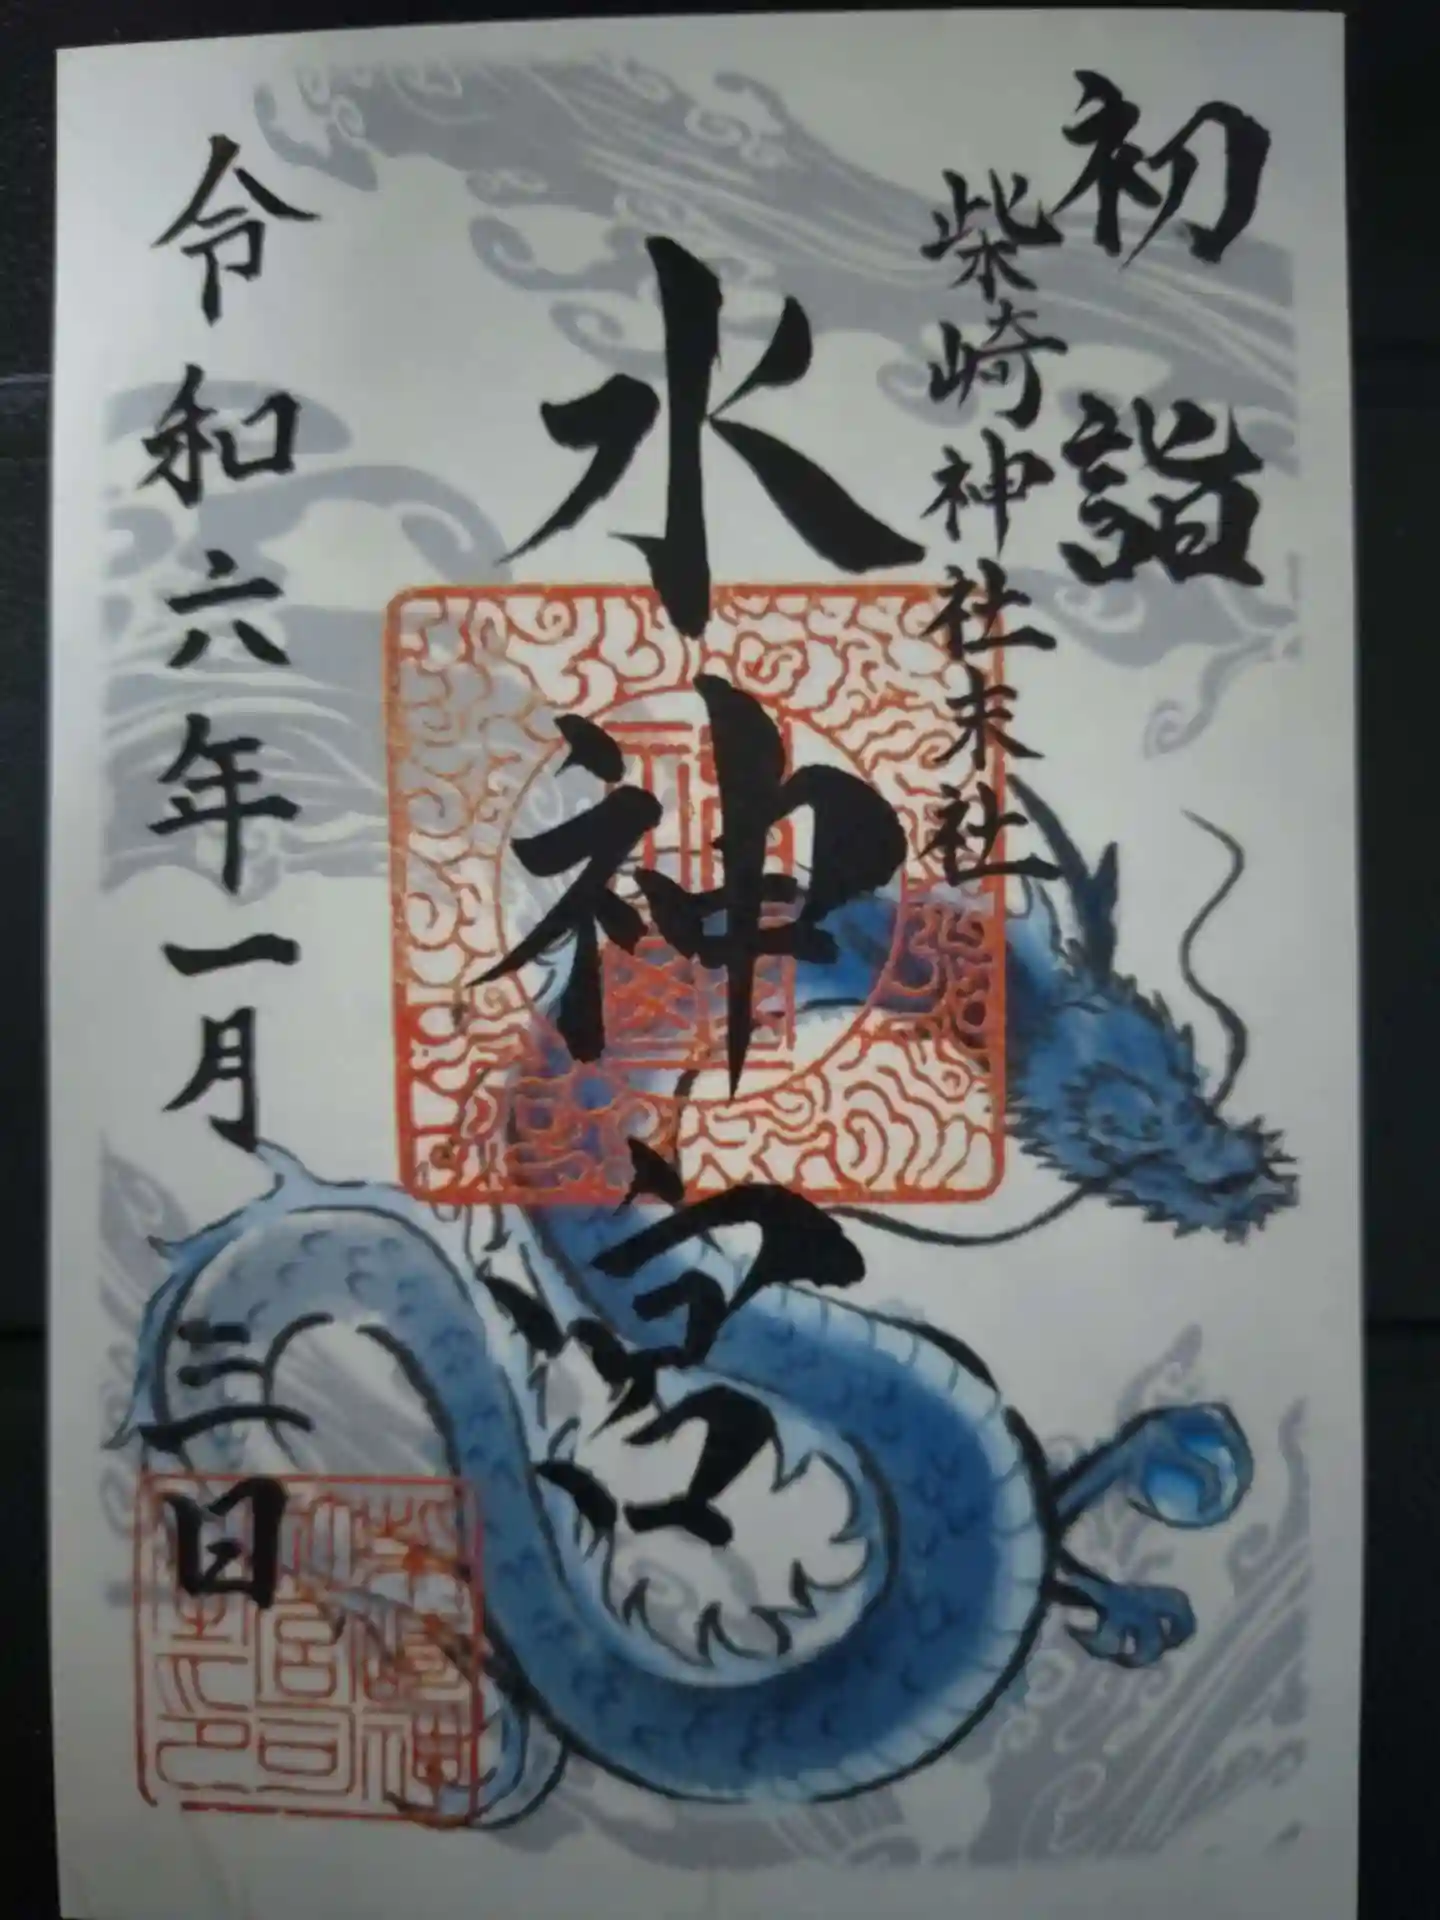 初詣
柴崎神社末社
水神宮
令和六年一月三日